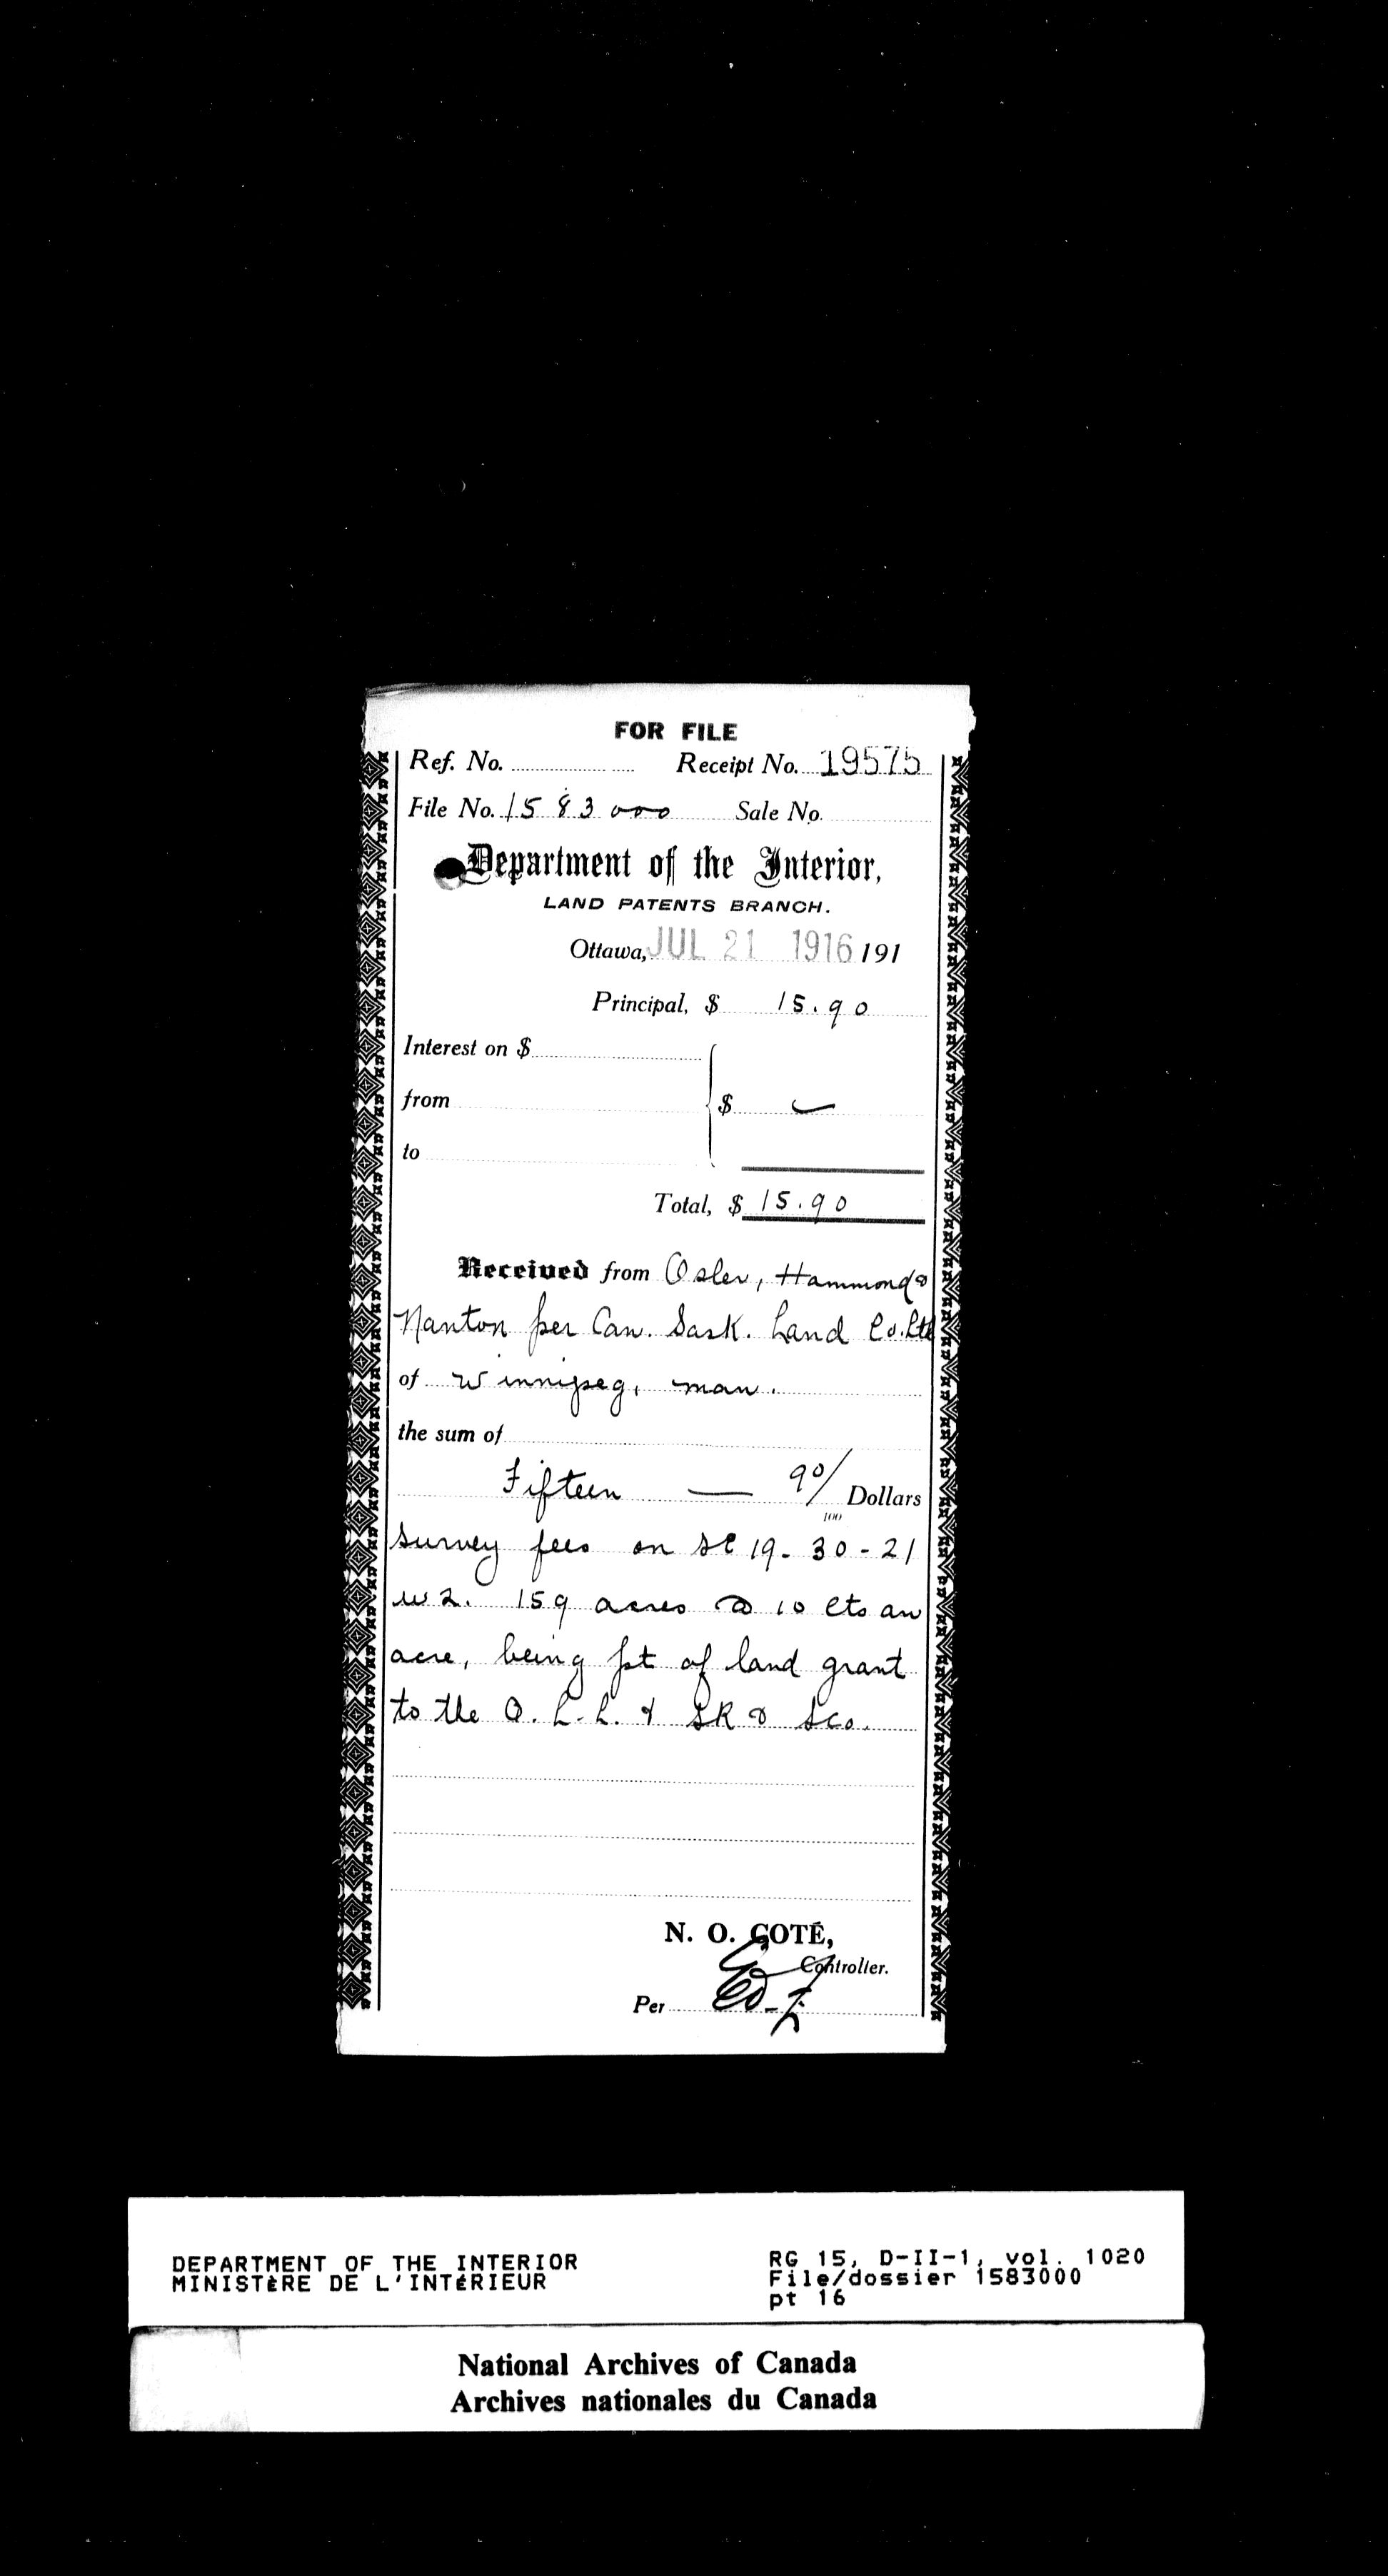 FOR FILE
Ref. No. Receipt No. 19575
File No. 1583000 Sale No.
Department of the Interior,
LAND PATENTS BRANCH.
Ottawa, JUL 21 1916 191
Principal, $ 15.90
Interest on $
from $
to
Total, $ 15.90
Received from Osler, Hammond &
Nanton per Can. Sask. Land Co. Ltd
of Winnipeg, Man.
the sum of
Fifteen — 90/100 Dollars
Survey fees on SE 19-30-21
W2. 159 acres @ 10 cts an
acre, being pt of land grant
to the Q. L. L. & SR & SCo.
N. O. COTÉ,
Controller.
Per
DEPARTMENT OF THE INTERIOR
MINISTÈRE DE L'INTÉRIEUR
RG 15, D-II-1, vol. 1020
File/dossier 1583000
pt 16
National Archives of Canada
Archives nationales du Canada